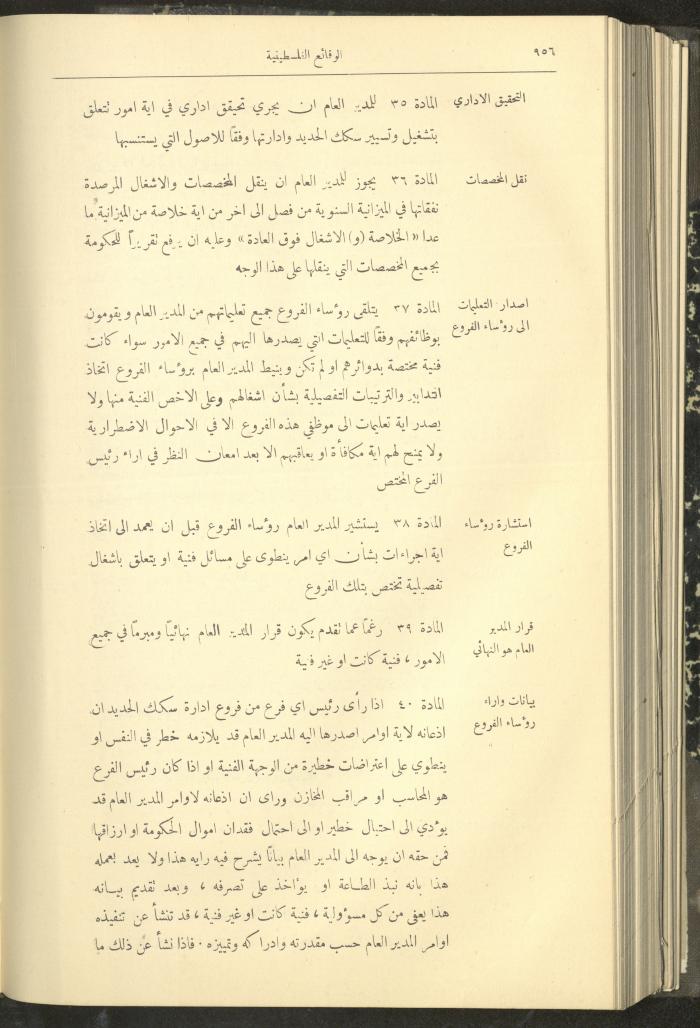 ٩٥٦
الوقائع الفلسطينية
التحقيق الاداري
المادة ٣٥ للمدير العام ان يجري تحيقق اداري في اية امور تتعلق
بتشغيل وتسيير سكك الحديد وادارتها وفقًا للاصول التي يستنسبها
نقل المخصصات
المادة ٣٦ يجوز للمدير العام ان ينقل المخصصات والاشغال المرصدة
نفقاتها في الميزانية السنوية من فصل الى اخر من اية خلاصة من الميزانية ما
عدا « الخلاصة (و) الاشغال فوق العادة » وعليه ان يرفع تقريرًا للحكومة
بجميع المخصصات التي ينقلها على هذا الوجه
اصدار التعليمات
الى روُساء الفروع
المادة ٣٧ يتلقى روُساء الفروع جميع تعليماتهم من المدير العام ويقومون
بوظائفهم وفقًا للتعليمات التي يصدرها اليهم في جميع الامور سواء كانت
فنية مختصة بدوائرهم او لم تكن وينيط المدير العام بروُساء الفروع اتخاذ
التدابير والترتيبات التفصيلية بشأن اشغالهم وعلى الاخص الفنية منها ولا
يصدر اية تعليمات الى موظفي هذه الفروع الا في الاحوال الاضطرارية
ولا يمنح لهم اية مكافأة او يعاقبهم الا بعد امعان النظر في اراء رئيس
الفرع المختص
استشارة روُساء
الفروع
المادة ٣٨ يستشير المدير العام روُساء الفروع قبل ان يعمد الى اتخاذ
اية اجراءات بشأن اي امر ينطوى على مسائل فنية او يتعلق باشغال
تفصيلية تختص بتلك الفروع
قرار المدير
العام هو النهائي
المادة ٣٩ رغمًا عما تقدم يكون قرار المدير العام نهائيًا ومبرمًا في جميع
الامور ، فنية كانت او غير فنية
بيانات واراء
روُساء الفروع
المادة ٤٠ اذا رأى رئيس اي فرع من فروع ادارة سكك الحديد ان
اذعانه لاية اوامر اصدرها اليه المدير العام قد يلازمه خطر في النفس او
ينطوي على اعتراضات خطيرة من الوجهة الفنية او اذا كان رئيس الفرع
هو المحاسب او مراقب المخازن وراى ان اذعانه لاوامر المدير العام قد
يوُدي الى احتبال خطير او الى احتمال فقدان اموال الحكومة او ارزاقها
فمن حقه ان يوجه الى المدير العام بيانًا يشرح فيه رايه هذا ولا يعد بعمله
هذا بانه نبذ الطاعة او يوُاخذ على تصرفه ، وبعد تقديم بيانه
هذا يعفى من كل مسوُولية ، فنية كانت او غير فنية ، قد تنشأ عن تنفيذه
اوامر المدير العام حسب مقدرته وادراكه وتمييزه . فاذا نشأ عن ذلك ما